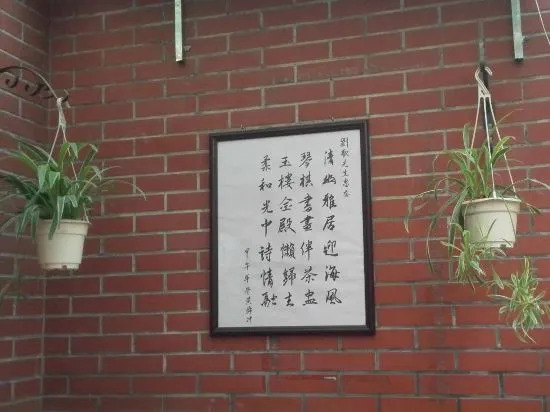 先生惠存
清幽雅居迎海風
琴棋書畫伴茶盅
玉樓金殿懶歸去
柔和光中詩情融
甲午年